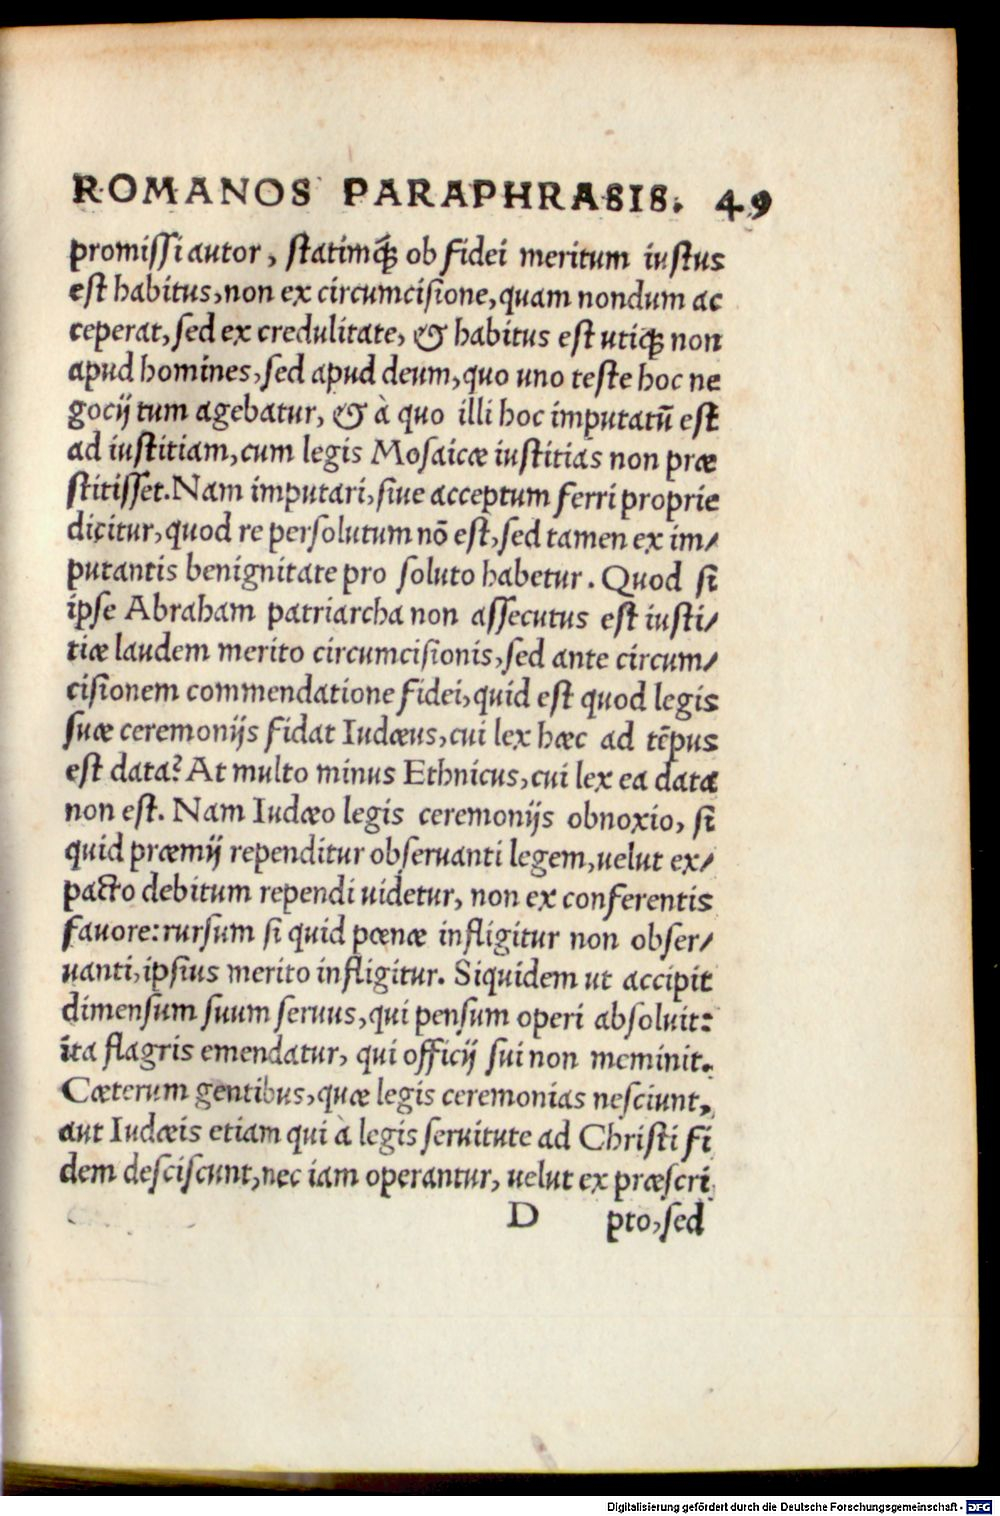 ROMANOS PARAPHRASIS. 49
promissi autor, statimq́ꝫ ob fidei meritum iustus
est habitus, non ex circumcisione, quam nondum ac
ceperat, sed ex credulitate, & habitus est utiqꝫ non
apud homines, sed apud deum, quo uno teste hoc ne
gocij tum agebatur, & à quo illi hoc imputatū est
ad iustitiam, cum legis Mosaicæ iustitias non præ
stitisset. Nam imputari, siue acceptum ferri proprie
dicitur, quod re persolutum nō est, sed tamen ex im/
putantis benignitate pro soluto habetur. Quod si
ipse Abraham patriarcha non assecutus est iusti/
tiæ laudem merito circumcisionis, sed ante circum/
cisionem commendatione fidei, quid est quod legis
suæ ceremonijs fidat Iudæus, cui lex hæc ad tēpus
est data? At multo minus Ethnicus, cui lex ea data
non est. Nam Iudæo legis ceremonijs obnoxio, si
quid præmij rependitur obseruanti legem, uelut ex/
pacto debitum rependi uidetur, non ex conferentis
fauore: rursum si quid pœnæ infligitur non obser/
uanti, ipsius merito infligitur. Siquidem ut accipit
dimensum suum seruus, qui pensum operi absoluit:
ita flagris emendatur, qui officij sui non meminit.
Cæterum gentibus, quæ legis ceremonias nesciunt,
aut Iudæis etiam qui à legis seruitute ad Christi fi
dem desciscunt, nec iam operantur, uelut ex præscri
D pto, sed
Digitalisierung gefördert durch die Deutsche Forschungsgemeinschaft - DFG